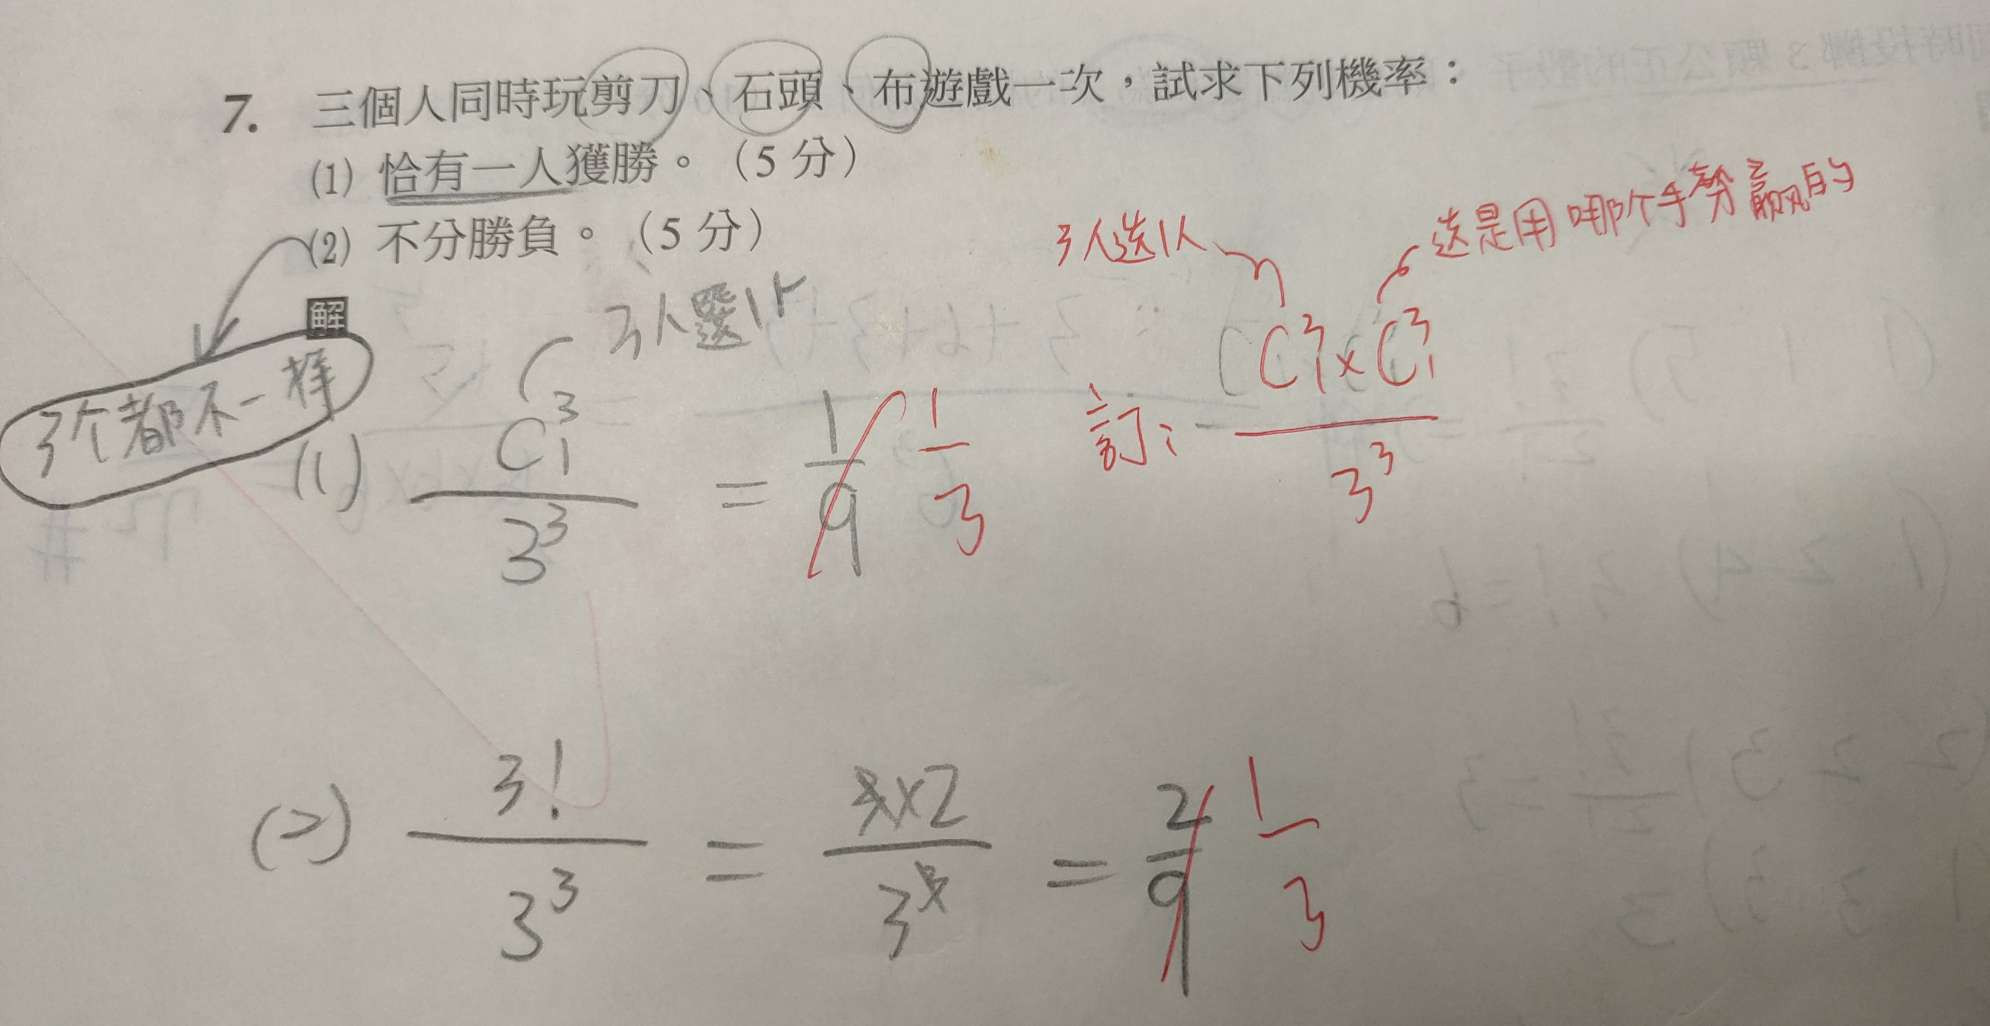 7. 三個人同時玩剪刀、石頭、布遊戲一次，試求下列機率：
(1) 恰有一人獲勝。（5 分）
(2) 不分勝負。（5 分）
解
3个都不一样
3人選1人
(1) C³₁ / 3³ = 1/9 1/3
3人选1人
这是用哪个手势赢的
訂： C³₁ × C³₁ / 3³
(2) 3! / 3³ = 3×2 / 3³ = 2/9 1/3